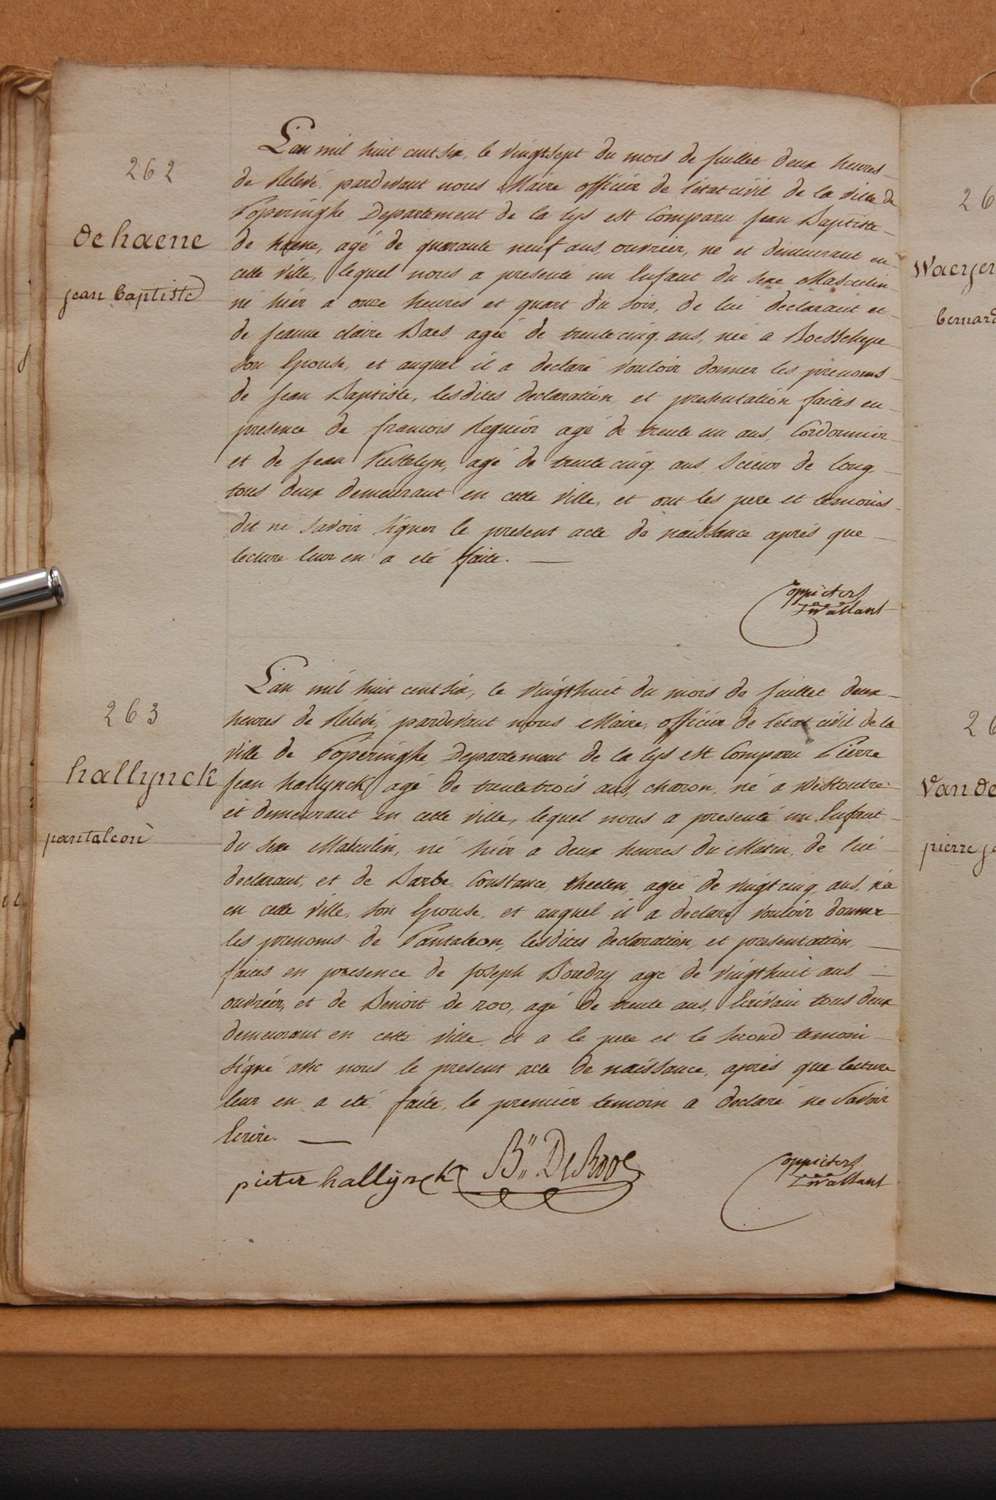 262
de haene
jean baptiste
L'an mil huit cent six, le vingtsept du mois de juillet deux heures
de Relevé, pardevant nous Maire officier de l'etat civil de la ville de
Poperinghe Departement de la Lys est Comparu Jean Baptiste
de haene, agé de quarante neuf ans, ouvrier, né et demeurant en
cette ville, lequel nous a presenté un Enfant du sexe Masculin
né hier a onze heures et quart du soir, de lui declarant et
de Jeanne claire Baes agée de trente cinq ans, née a Boesschepe
son Epouse, et auquel il a declaré vouloir donner les prenoms
de Jean Baptiste, lesdites declaration et presentation faites en
presence de francois Requier agé de trente un ans, Cordonnier
et de Jean Kestelyn, agé de trente cinq ans, Scieur de long
tous deux demeurant en cette ville, et ont les pere et temoins
dit ne savoir signer le present acte de naissance après que
lecture leur en a eté faite.
Coppieters
T'Wallant
263
hallynck
pantaleon
L'an mil huit cent six, le vingthuit du mois de juillet deux
heures de Relevé, pardevant nous Maire, officier de l'etat civil de la
ville de Poperinghe Departement de la Lys est Comparu Pierre
Jean hallynck agé de trente trois ans, charon, né a Westoutre
et demeurant en cette ville, lequel nous a presenté un Enfant
du sexe Masculin, né hier a deux heures du Matin, de lui
declarant, et de Barbe Constance theeten, agée de vingt cinq ans, née
en cette ville, son Epouse, et auquel il a declaré vouloir donner
les prenoms de Pantaleon, lesdites declaration et presentation
faites en presence de Joseph Boudry agé de vingthuit ans
ouvrier, et de Benoit de roo, agé de trente ans, Ecrivain tous deux
demeurant en cette ville, et a le pere et le second temoin
signé avec nous le present acte de naissance, après que lecture
leur en a eté faite, le premier temoin a declaré ne Savoir
Ecrire.
pieter hallynck
B. De Rooe
Coppieters
T'Wallant
26
Waeyen
bernard
26
Van de
pierre je